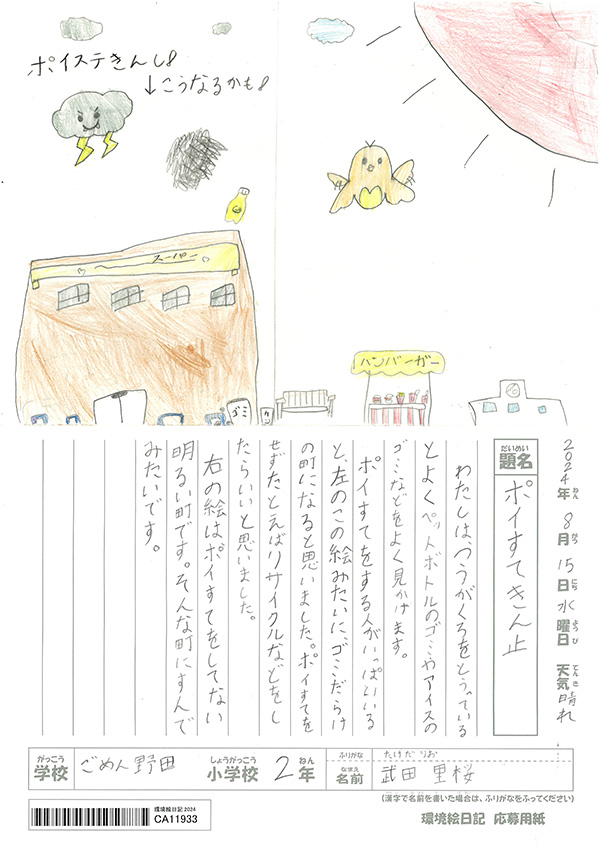 ポイステきんし!
↓こうなるかも!
スーパー
ゴミ
ハンバーガー
2024年ねん 8月がつ 15日にち 水曜日ようび 天気てんき 晴れ
だいめい
題名
ポイすてきん止
わたしは、つうがくろをとうっている
とよくペットボトルのゴミやアイスの
ゴミなどをよく見かけます。
ポイすてをする人がいっぱいいる
と、左のこの絵みたいに、ゴミだらけ
の町になると思いました。ポイすてを
せずたとえばリサイクルなどをし
たらいいと思いました。
右の絵はポイすてをしてない
明るい町です。そんな町にすんで
みたいです。
がっこう
学校
ごめん野田
しょうがっこう
小学校
2
ねん
年
ふりがな
たけだ りお
なまえ
名前
武田 里桜
(漢字で名前を書いた場合は、ふりがなをふってください)
環境絵日記2024
CA11933
環境絵日記 応募用紙